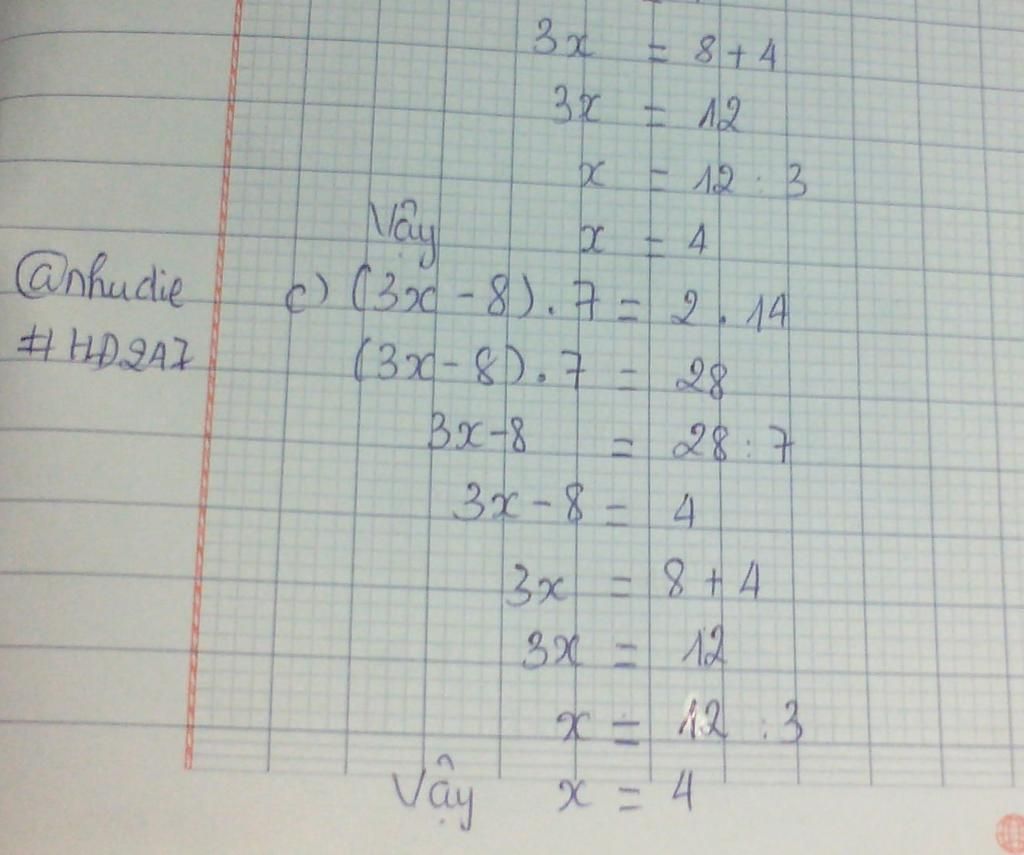 3x = 8 + 4
3x = 12
x = 12 : 3
Vậy x = 4
@nhudie
#HD2A7
c) (3x - 8) . 7 = 2 . 14
(3x - 8) . 7 = 28
3x - 8 = 28 : 7
3x - 8 = 4
3x = 8 + 4
3x = 12
x = 12 : 3
Vậy x = 4